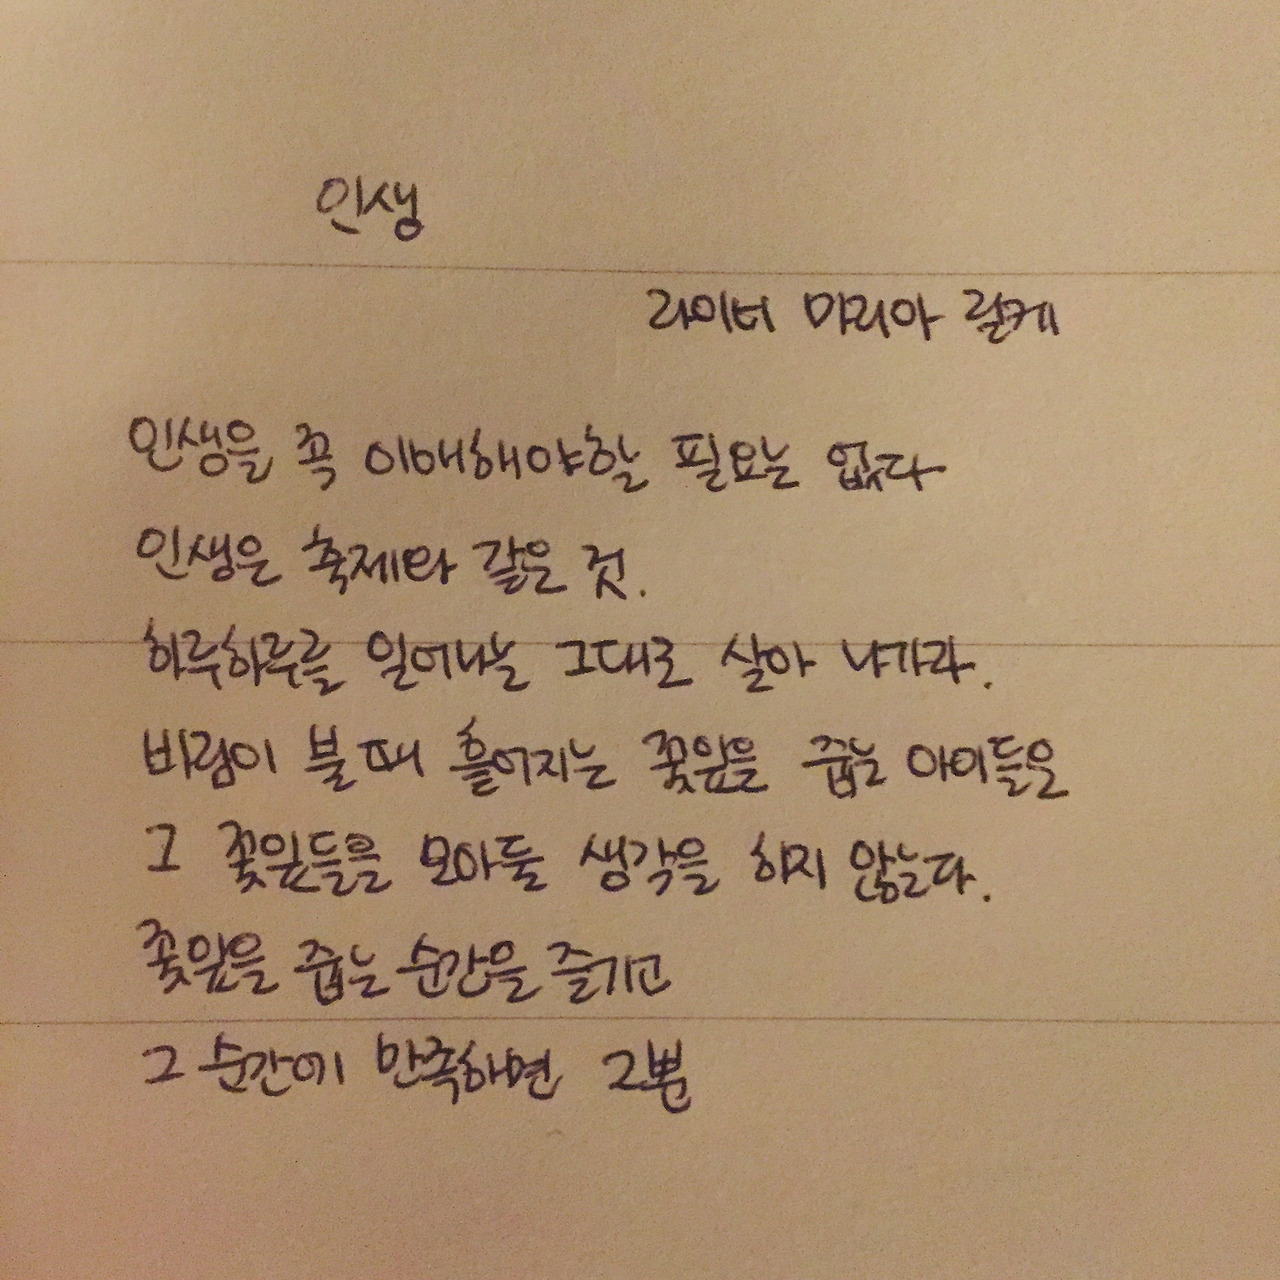 인생
라이터 마리아 릴케
인생을 꼭 이해해야할 필요는 없다
인생은 축제와 같은 것.
하루하루를 일어나는 그대로 살아 나가라.
바람이 불 때 흩어지는 꽃잎을 줍는 아이들은
그 꽃잎들을 모아둘 생각을 하지 않는다.
꽃잎을 줍는 순간을 즐기고
그 순간에 만족하면 그뿐